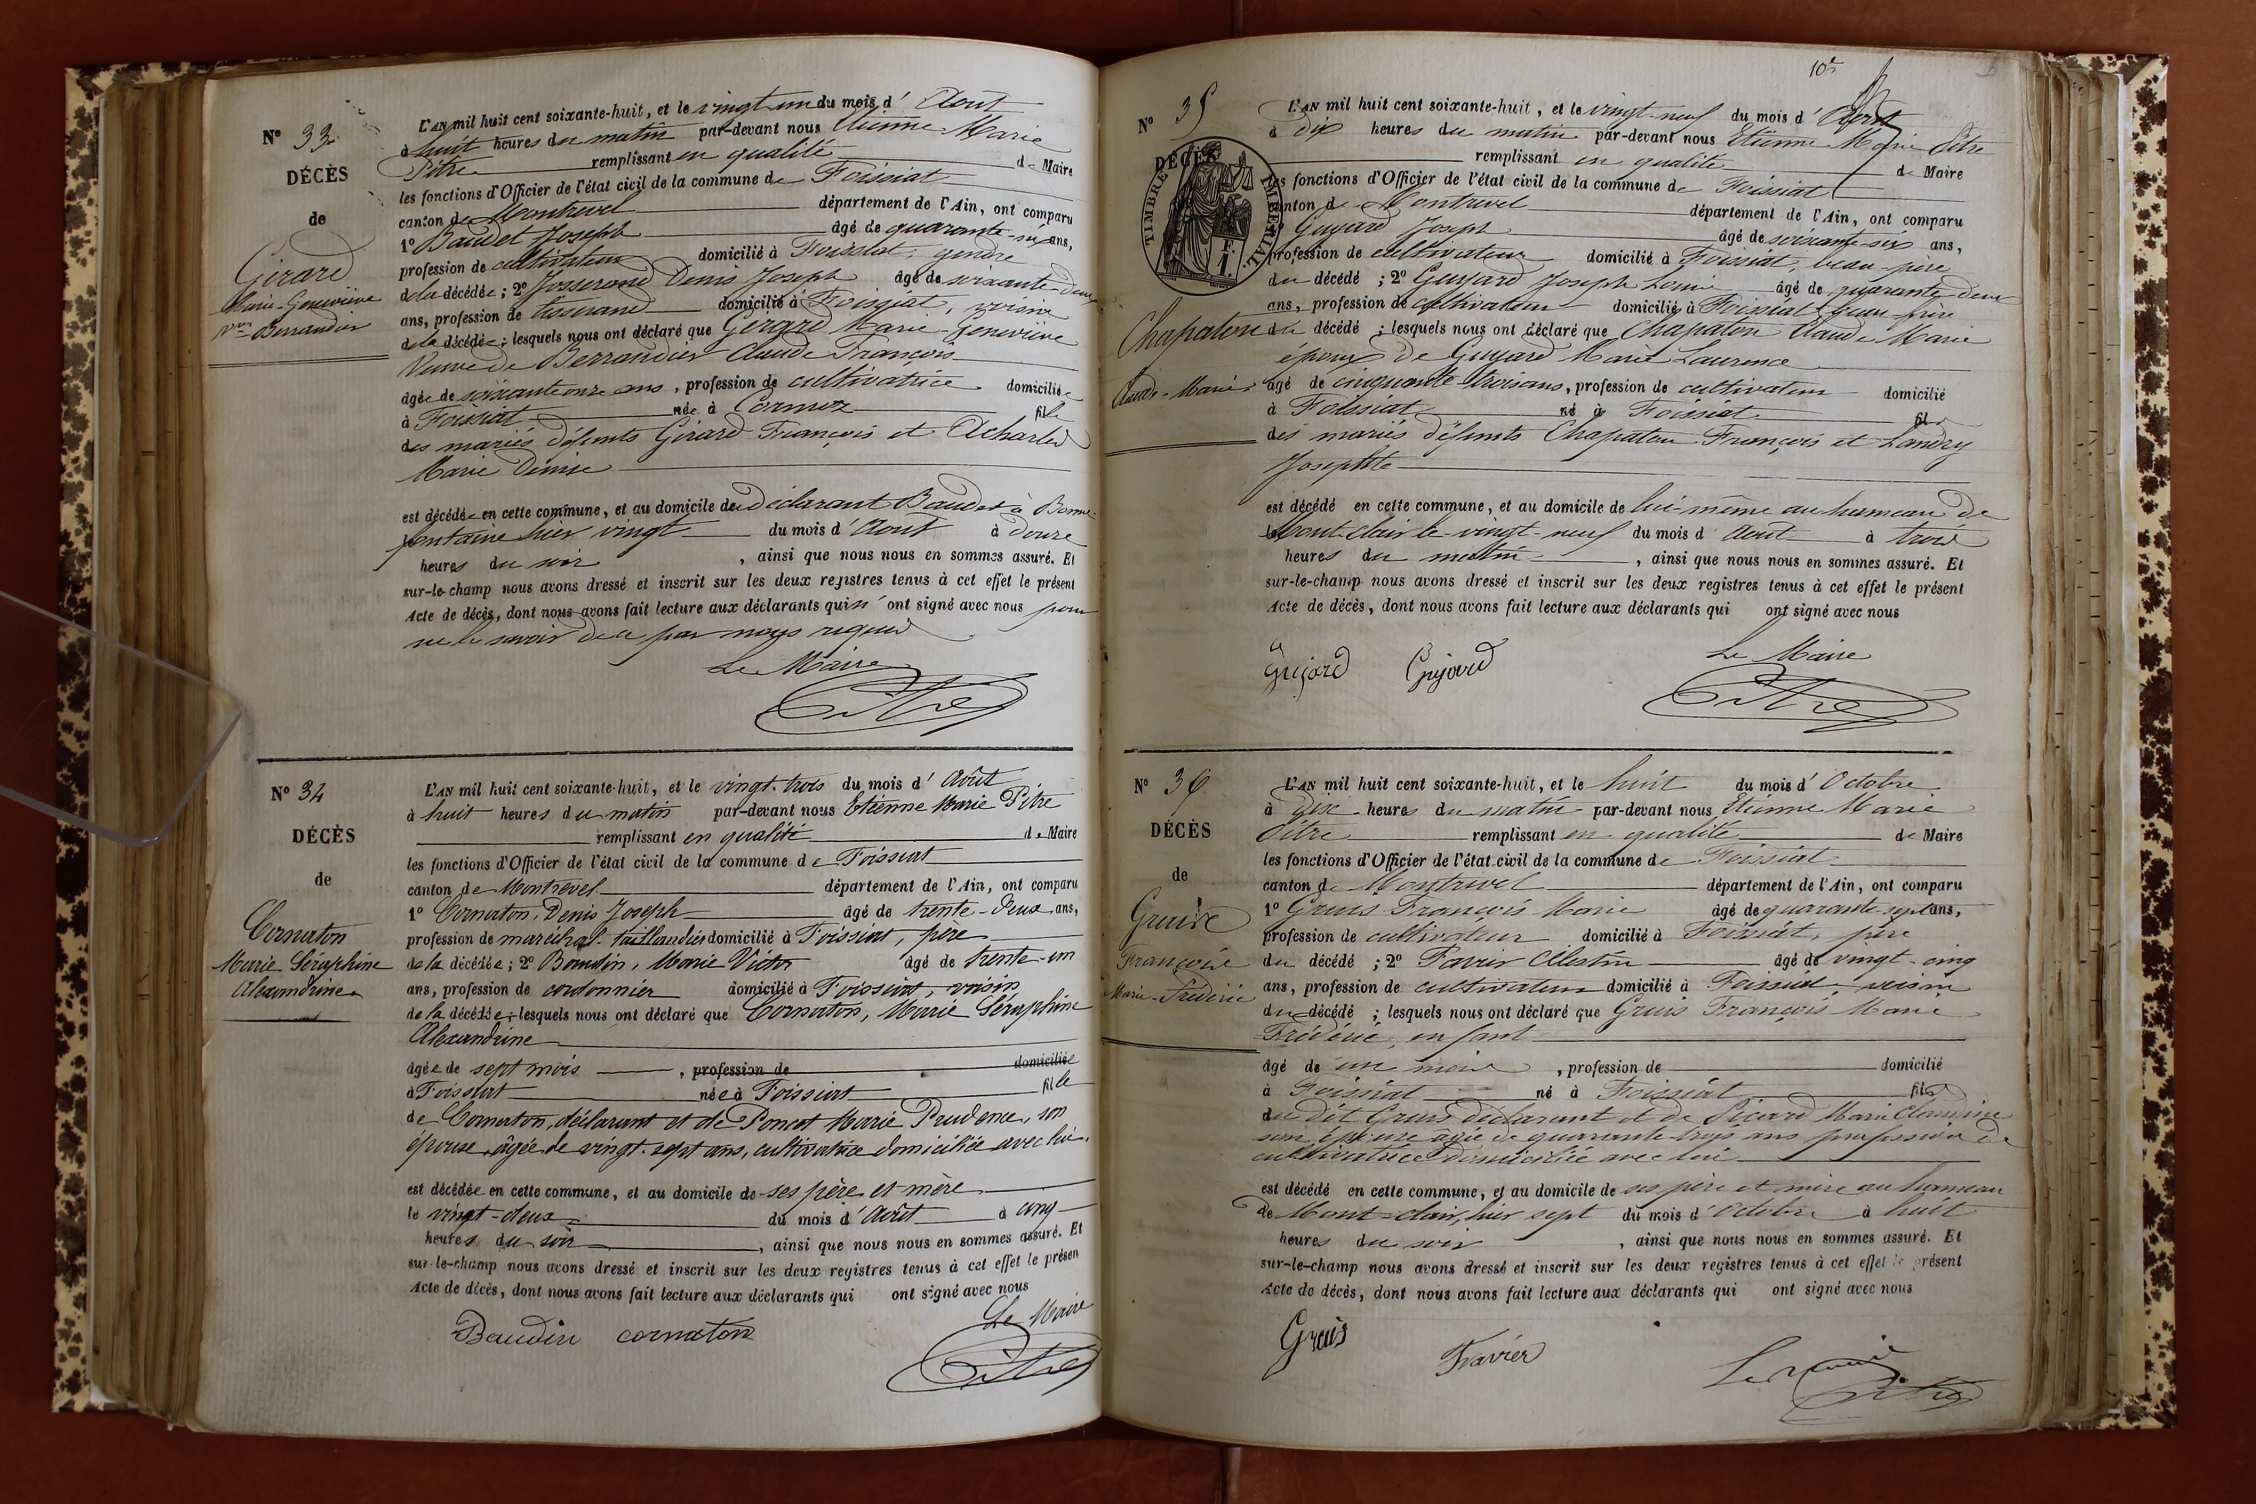 N° 33
DÉCÈS
de
Girard
Marie-Geneviève
Vve Berrandier
L'AN mil huit cent soixante-huit, et le vingt un du mois d'Aout
à huit heures du matin par-devant nous Etienne Marie
Pitre remplissant en qualité de Maire
les fonctions d'Officier de l'état civil de la commune de Foissiat
canton de Montrevel département de l'Ain, ont comparu
1° Baudet Joseph âgé de quarante-six ans,
profession de cultivateur domicilié à Foissiat, gendre
de la décédée; 2° Josserand Denis Joseph âgé de soixante-deux
ans, profession de tisserand domicilié à Foissiat, voisin
de la décédée; lesquels nous ont déclaré que Girard Marie-Geneviève
Veuve de Berrandier Claude François
âgée de soixante onze ans, profession de cultivatrice domiciliée
à Foissiat née à Cormoz fille
des mariés défunts Girard François et Acharles
Marie Denise
est décédée en cette commune, et au domicile de déclarant Baudet à Bonne-
fontaine hier vingt du mois d'Aout à douze
heures du soir, ainsi que nous nous en sommes assuré. Et
sur-le-champ nous avons dressé et inscrit sur les deux registres tenus à cet effet le présent
Acte de décès, dont nous avons fait lecture aux déclarants qui n'ont signé avec nous pour
ne le savoir de ce par nous requis
Le Maire
Pitre
N° 34
DÉCÈS
de
Cornaton
Marie Séraphine
Alexandrine
L'AN mil huit cent soixante-huit, et le vingt-trois du mois d'Août
à huit heures du matin par-devant nous Etienne Marie Pitre
remplissant en qualité de Maire
les fonctions d'Officier de l'état civil de la commune de Foissiat
canton de Montrevel département de l'Ain, ont comparu
1° Cornaton, Denis Joseph âgé de trente-deux ans,
profession de maréchal-taillandier domicilié à Foissiat, père
de la décédée; 2° Baudin, Marie Victor âgé de trente-un
ans, profession de cordonnier domicilié à Foissiat, voisin
de la décédée; lesquels nous ont déclaré que Cornaton, Marie Séraphine
Alexandrine
âgée de sept mois, profession de domiciliée
à Foissiat née à Foissiat fille
de Cornaton, déclarant et de Poncet Marie Prudence, son
épouse, âgée de vingt-sept ans, cultivatrice domiciliée avec lui.
est décédée en cette commune, et au domicile de ses père et mère
le vingt-deux du mois d'Août à cinq
heures du soir, ainsi que nous nous en sommes assuré. Et
sur-le-champ nous avons dressé et inscrit sur les deux registres tenus à cet effet le présen
Acte de décès, dont nous avons fait lecture aux déclarants qui ont signé avec nous
Le Maire
Baudin cornaton
Pitre
10e
N° 35
DÉCÈS
TIMBRE IMPÉRIAL
1 F.
Chapaton
Claude-Marie
L'AN mil huit cent soixante-huit, et le vingt-neuf du mois d'Aout
à dix heures du matin par-devant nous Etienne Marie Pitre
remplissant en qualité de Maire
les fonctions d'Officier de l'état civil de la commune de Foissiat
canton de Montrevel département de l'Ain, ont comparu
Guyard Joseph âgé de soixante-six ans,
profession de cultivateur domicilié à Foissiat, beau-père
du décédé; 2° Guyard Joseph Louis âgé de quarante-deux
ans, profession de cultivateur domicilié à Foissiat, beau-frère
du décédé; lesquels nous ont déclaré que Chapaton Claude Marie
époux de Guyard Marie Laurence
âgé de cinquante-trois ans, profession de cultivateur domicilié
à Foissiat né à Foissiat fils
des mariés défunts Chapaton François et Landry
Josephte
est décédé en cette commune, et au domicile de lui-même au hameau de
Mont-clair le vingt-neuf du mois d'Aout à trois
heures du matin, ainsi que nous nous en sommes assuré. Et
sur-le-champ nous avons dressé et inscrit sur les deux registres tenus à cet effet le présent
Acte de décès, dont nous avons fait lecture aux déclarants qui ont signé avec nous
Le Maire
Guyard Guyard
Pitre
N° 36
DÉCÈS
de
François
Marie-Frédéric
L'AN mil huit cent soixante-huit, et le huit du mois d'Octobre
à dix heures du matin par-devant nous Etienne Marie
Pitre remplissant en qualité de Maire
les fonctions d'Officier de l'état civil de la commune de Foissiat
canton de Montrevel département de l'Ain, ont comparu
1° Gruis François Marie âgé de quarante-sept ans,
profession de cultivateur domicilié à Foissiat, père
du décédé; 2° Favier Célestin âgé de vingt-cinq
ans, profession de cultivateur domicilié à Foissiat, voisin
du décédé; lesquels nous ont déclaré que Gruis François Marie
Frédéric, enfant
âgé de un mois, profession de domicilié
à Foissiat né à Foissiat fils
du dit Gruis déclarant et de Picard Marie Claudine
son épouse âgée de quarante-trois ans profession de
cultivatrice domiciliée avec lui
est décédé en cette commune, et au domicile de ses père et mère au hameau
de Mont-clair, hier sept du mois d'Octobre à huit
heures du soir, ainsi que nous nous en sommes assuré. Et
sur-le-champ nous avons dressé et inscrit sur les deux registres tenus à cet effet le présent
Acte de décès, dont nous avons fait lecture aux déclarants qui ont signé avec nous
Gruis
Favier
Le maire
Pitre